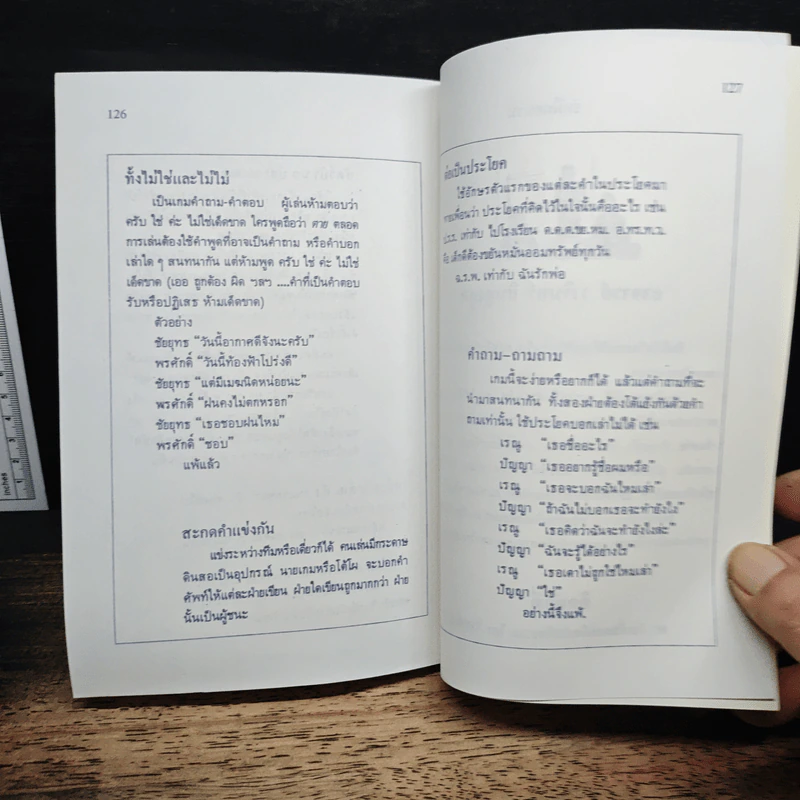 126
ทั้งไม่ใช่และไม่ไม่
เป็นเกมคำถาม-คำตอบ ผู้เล่นห้ามตอบว่า
ครับ ใช่ ค่ะ ไม่ใช่เด็ดขาด ใครพูดถือว่า ตาย ตลอด
การเล่นต้องใช้คำพูดที่อาจเป็นคำถาม หรือคำบอก
เล่าใด ๆ สนทนากัน แต่ห้ามพูด ครับ ใช่ ค่ะ ไม่ใช่
เด็ดขาด (เออ ถูกต้อง ผิด ฯลฯ ....คำที่เป็นคำตอบ
รับหรือปฏิเสธ ห้ามเด็ดขาด)
ตัวอย่าง
ชัยยุทธ “วันนี้อากาศดีจังนะครับ”
พรศักดิ์ “วันนี้ท้องฟ้าโปร่งดี”
ชัยยุทธ “แต่มีเมฆนิดหน่อยนะ”
พรศักดิ์ “ฝนคงไม่ตกหรอก”
ชัยยุทธ “เธอชอบฝนไหม”
พรศักดิ์ “ชอบ”
แพ้แล้ว
สะกดคำแข่งกัน
แข่งระหว่างทีมหรือเดี่ยวก็ได้ คนเล่นมีกระดาษ
ดินสอเป็นอุปกรณ์ นายเกมหรือโต้โผ จะบอกคำ
ศัพท์ให้แต่ละฝ่ายเขียน ฝ่ายใดเขียนถูกมากกว่า ฝ่าย
นั้นเป็นผู้ชนะ
127
ต่อเป็นประโยค
ใช้อักษรตัวแรกของแต่ละคำในประโยคมา
ทายเพื่อนว่า ประโยคที่คิดไว้ในใจนั้นคืออะไร เช่น
ป.ร.ร. เท่ากับ ไปโรงเรียน
คือ เด็กดีต้องขยันหมั่นออมทรัพย์ทุกวัน
ฉ.ร.พ. เท่ากับ ฉันรักพ่อ
คำถาม-ถามถาม
เกมนี้จะง่ายหรือยากก็ได้ แล้วแต่คำถามที่จะ
นำมาสนทนากัน ทั้งสองฝ่ายต้องโต้แย้งกันด้วยคำ
ถามเท่านั้น ใช้ประโยคบอกเล่าไม่ได้ เช่น
เรณู “เธอชื่ออะไร”
ปัญญา “เธออยากรู้ชื่อผมหรือ”
เรณู “เธอจะบอกฉันไหมเล่า”
ปัญญา “ถ้าฉันไม่บอกเธอจะทำยังไง”
เรณู “เธอคิดว่าฉันจะทำยังไงล่ะ”
ปัญญา “ฉันจะรู้ได้อย่างไร”
เรณู “เธอเดาไม่ถูกใช่ไหมเล่า”
ปัญญา “ใช่”
อย่างนี้จึงแพ้.
inches